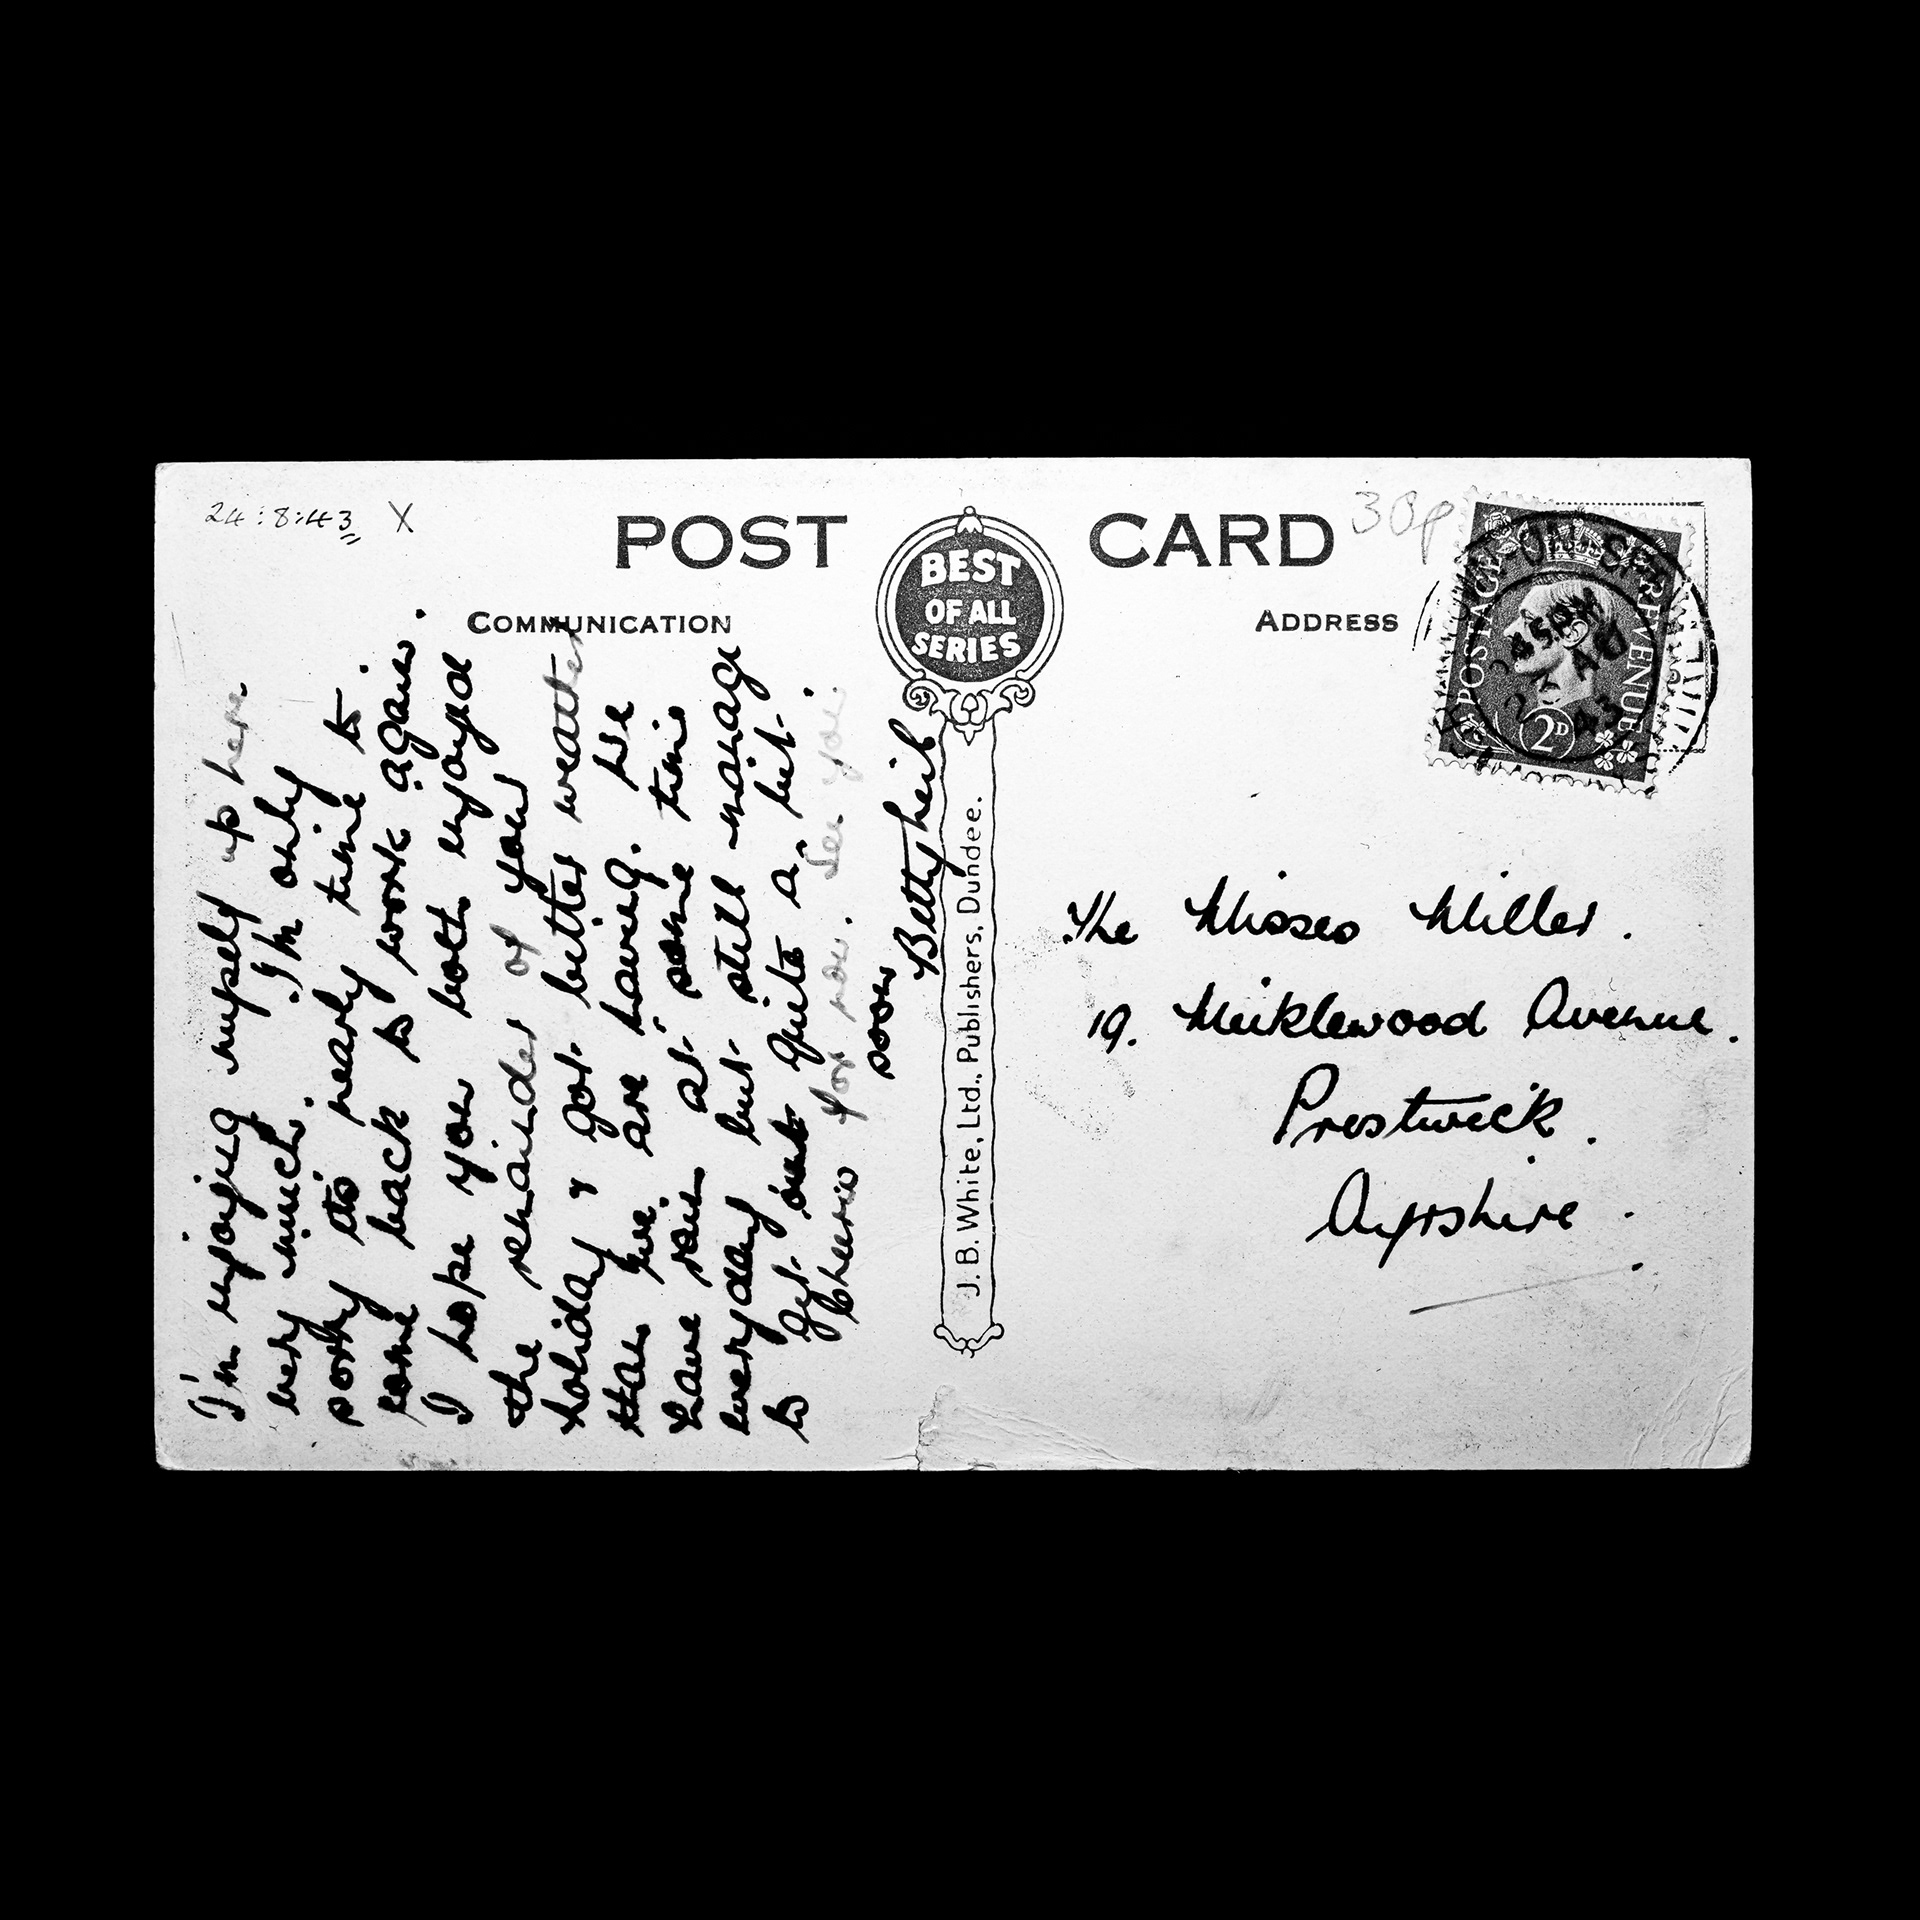 24:8:43 X
POST CARD
30p
BEST
OF ALL
SERIES
COMMUNICATION
ADDRESS
POSTAGE REVENUE
2D
I'm enjoying myself up here
very much. I'm only
sorry its nearly time to
come back to work again.
I hope you both enjoyed
the remainder of your
holiday & got better weather
than we are having. We
have rain at some time
everyday but still manage
to get out quite a bit.
Cheerio for now. See you
soon
Betty
J. B. White, Ltd., Publishers, Dundee.
The Misses Miller.
19. Meiklewood Avenue.
Prestwick.
Ayrshire.